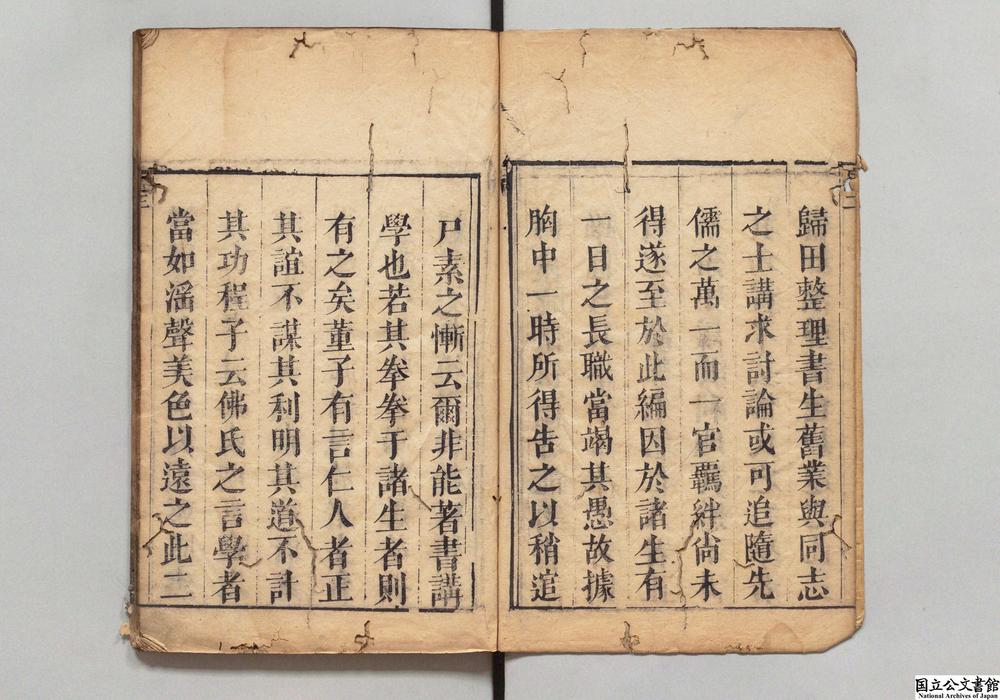 歸田整理書生舊業與同志
之士講求討論或可追隨先
儒之萬一而一官羈絆尙未
得遂至於此編因於諸生有
一日之長職當竭其愚故據
胸中一時所得告之以稍逭
尸素之慚云爾非能著書講
學也若其拳拳于諸生者則
有之矣董子有言仁人者正
其誼不謀其利明其道不計
其功程子云佛氏之言學者
當如滛聲美色以遠之此二
国立公文書館
National Archives of Japan